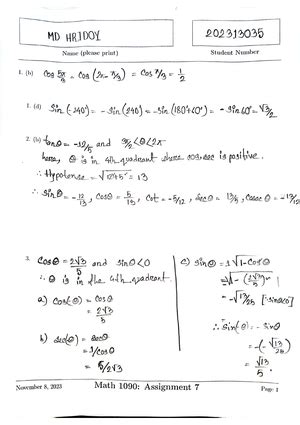 MD HRIDOY
202313035
Name (please print)
Student Number
1. (b) cos 5π/3 = cos (2π - π/3) = cos π/3 = 1/2
1. (d) Sin (-240°) = - Sin (240) = - Sin (180°+60°) = - Sin 60° = √3/2
2. (b) tanθ = -12/5 and 3π/2 < θ < 2π
here, θ is in 4th quadrant where cosine is positive.
∴ Hypotenuse = = 13
∴ Sinθ = -12/13, Cosθ = 5/13, Cot = -5/12, Secθ = 13/5, Cosec θ = -13/12
3. Cosθ = 2√3/5 and Sinθ < 0
∴ θ is in the 4th quadrant.
a.) Cos(-θ) = Cosθ
= 2√3/5
b) Sec(θ) = Secθ
= 1/Cosθ
= 5/2√3
c) Sinθ = 1√1-Cos²θ
= √1-(2√3/5)²
= -√13/25 [∵ Sinθ<0]
∴ Sin(-θ) = - Sinθ
= -(-√13/25)
= √13/5.
November 8, 2023
Math 1090: Assignment 7
Page: 1